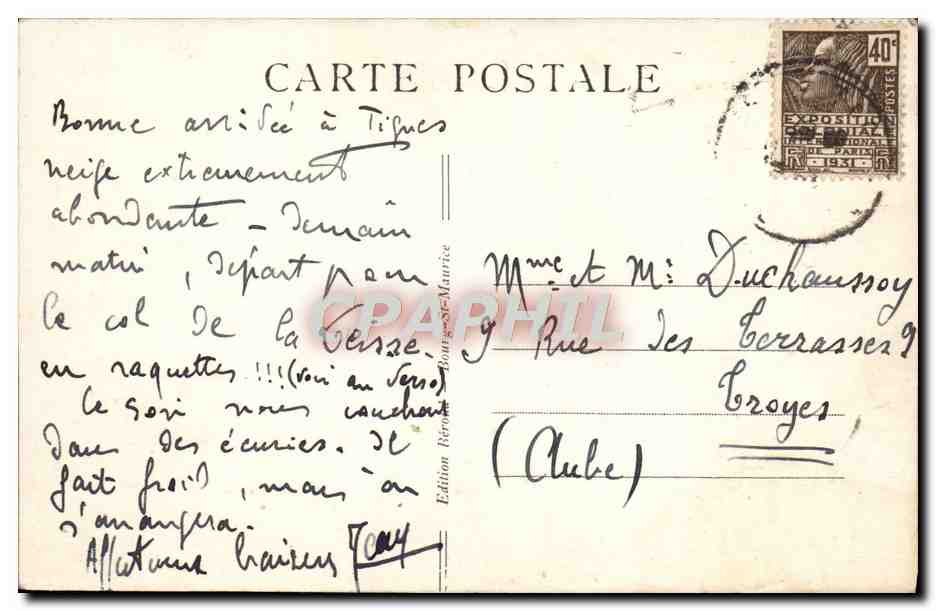 CARTE POSTALE
Bonne arrivée à Tignes
neige extremement
abondante - Demain
matin, départ pour
le col de la Leisse.
en raquettes !!! (voir au verso)
Le soir nous couchons
dans des écuries. Il
fait froid, mais on
s'arrangera.
Affectueux baisers Jean
Edition Béroud Bourg-St-Maurice
40c
POSTES
EXPOSITION
COLONIALE
INTERNATIONALE
DE PARIS
1931
Mme et Mr Duchaussoy
9 Rue des Terrasses 9
Troyes
(Aube)
CPAPHIL